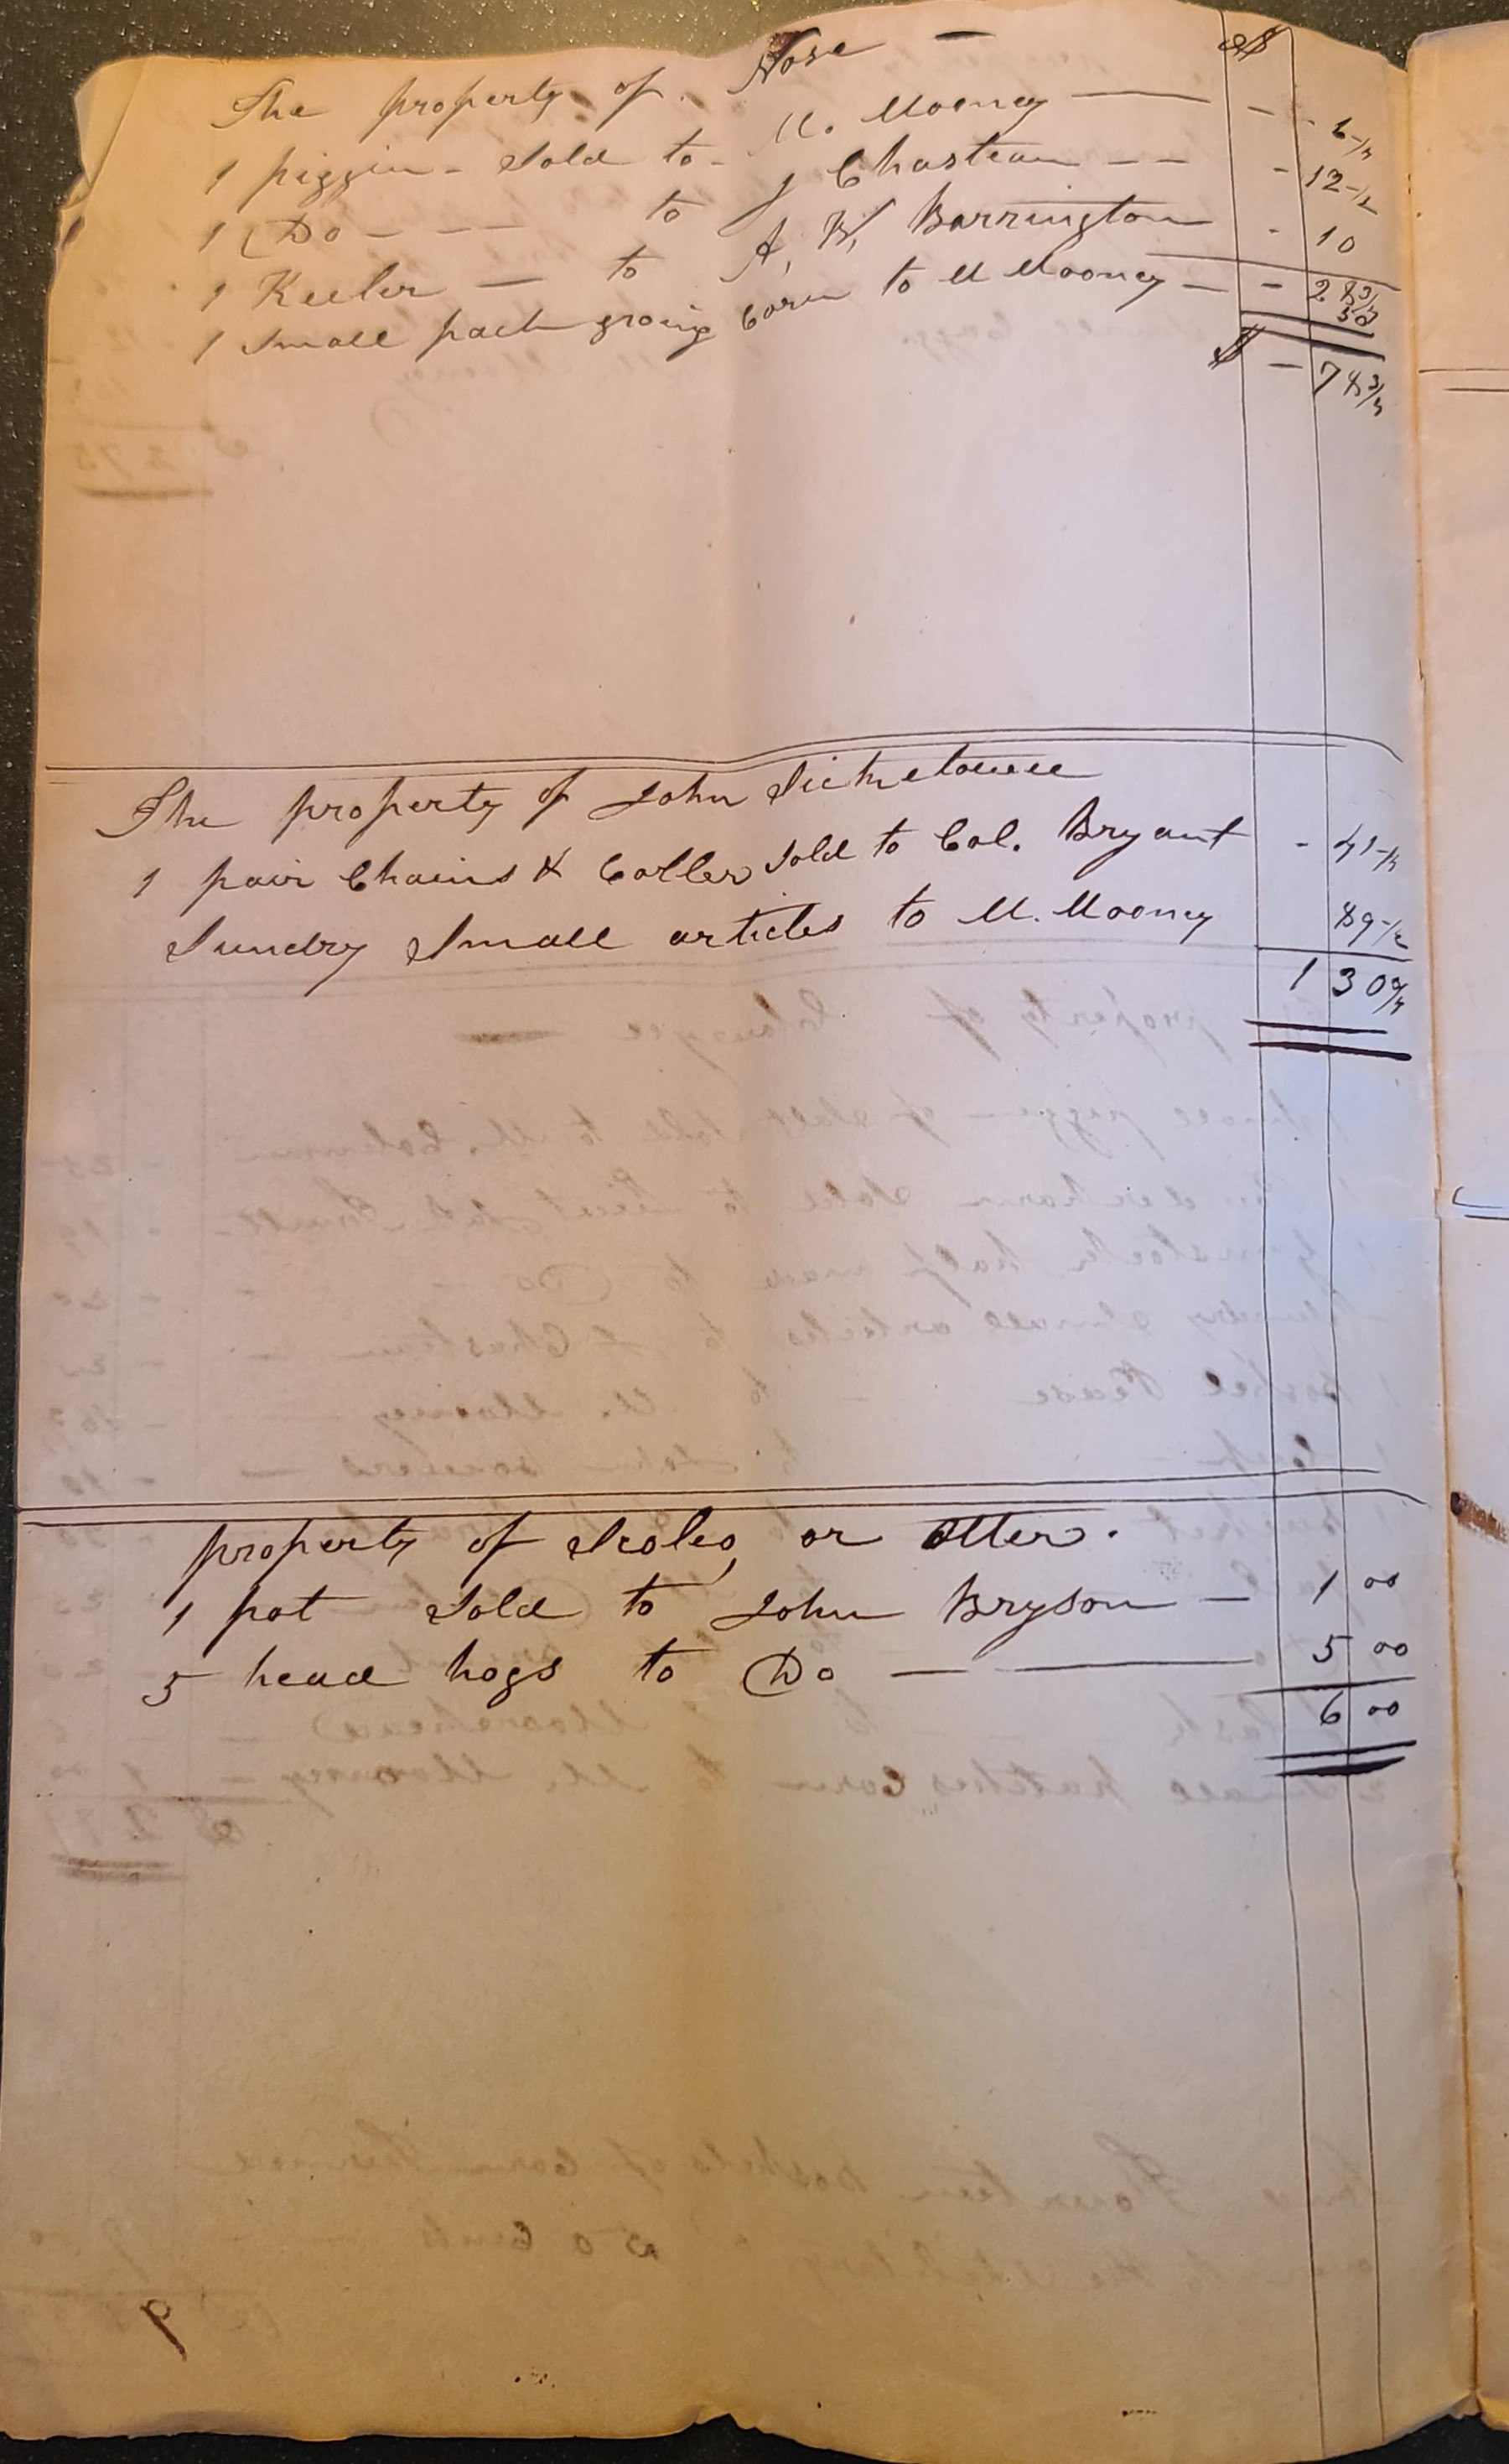 The property of Nose — $
1 piggin - Sold to - M. Mooney — - - 6 1/4
1 Do - - - to J Chasteen - - - 12 1/2
1 Keeler — to A, W, Barrington - 10
- 28 3/4
1 Small patch groing Corn to M Mooney — 50
$ - 78 3/4
The property of John
1 pair Chains & Coller Sold to Col. Bryant - 41 1/4
Sundry Small articles to M. Mooney 89 1/2
1 30 3/4
property of or Otter.
1 pot Sold to John Bryson — 1 00
5 head hogs to Do — 5 00
6 00
9